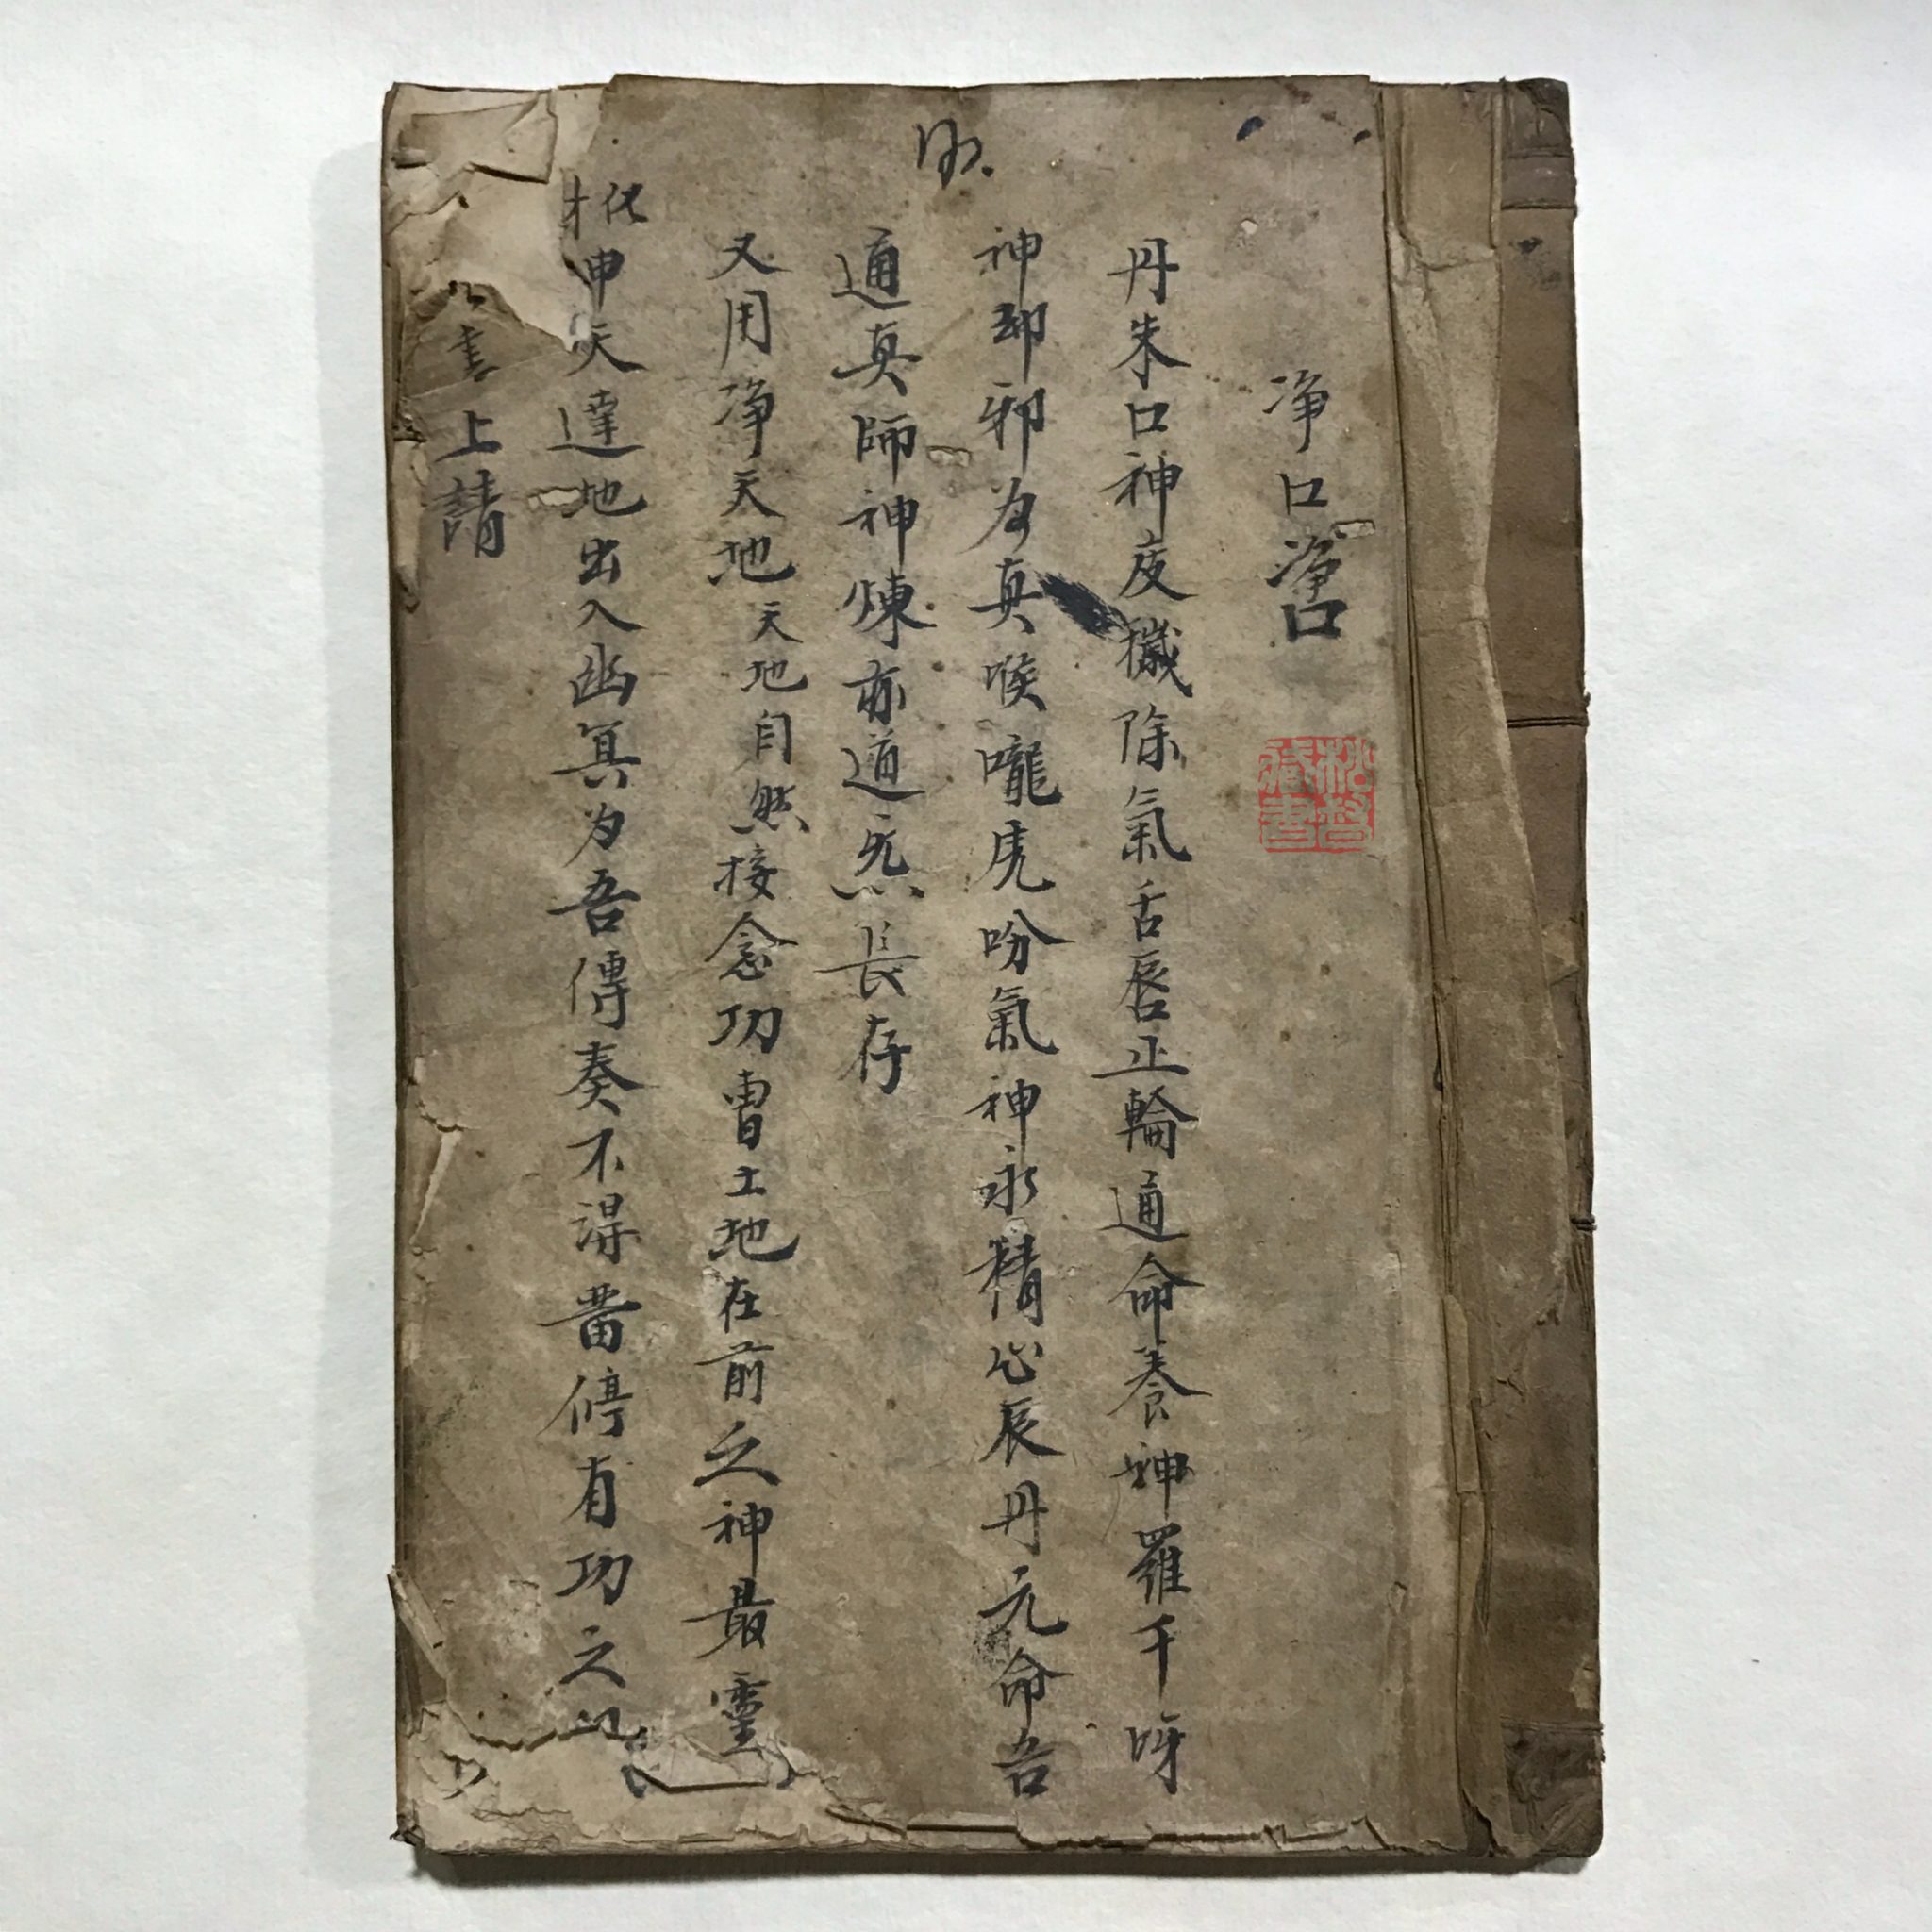 净口
丹朱口神度穢除氣舌唇正輪通命養神羅千呀
神却邪为真喉嚨虎吩氣神永精心辰丹元命吾
通真師神煉亦道炁長存
又用净天地天地自然接念功曹土地在前之神最靈
申天達地出入幽冥为吾傳奏不淂番停有功之
上請